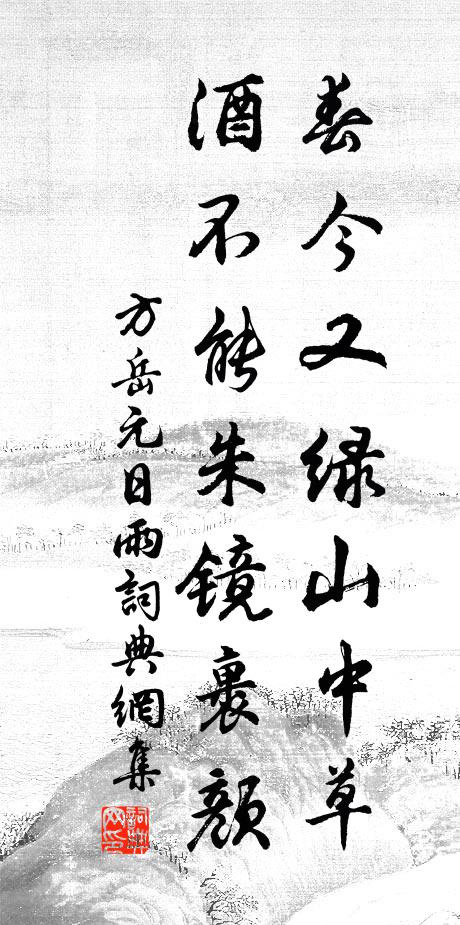 春今又绿山中草
酒不能朱镜裏颜
方岳元日雨詞典網集